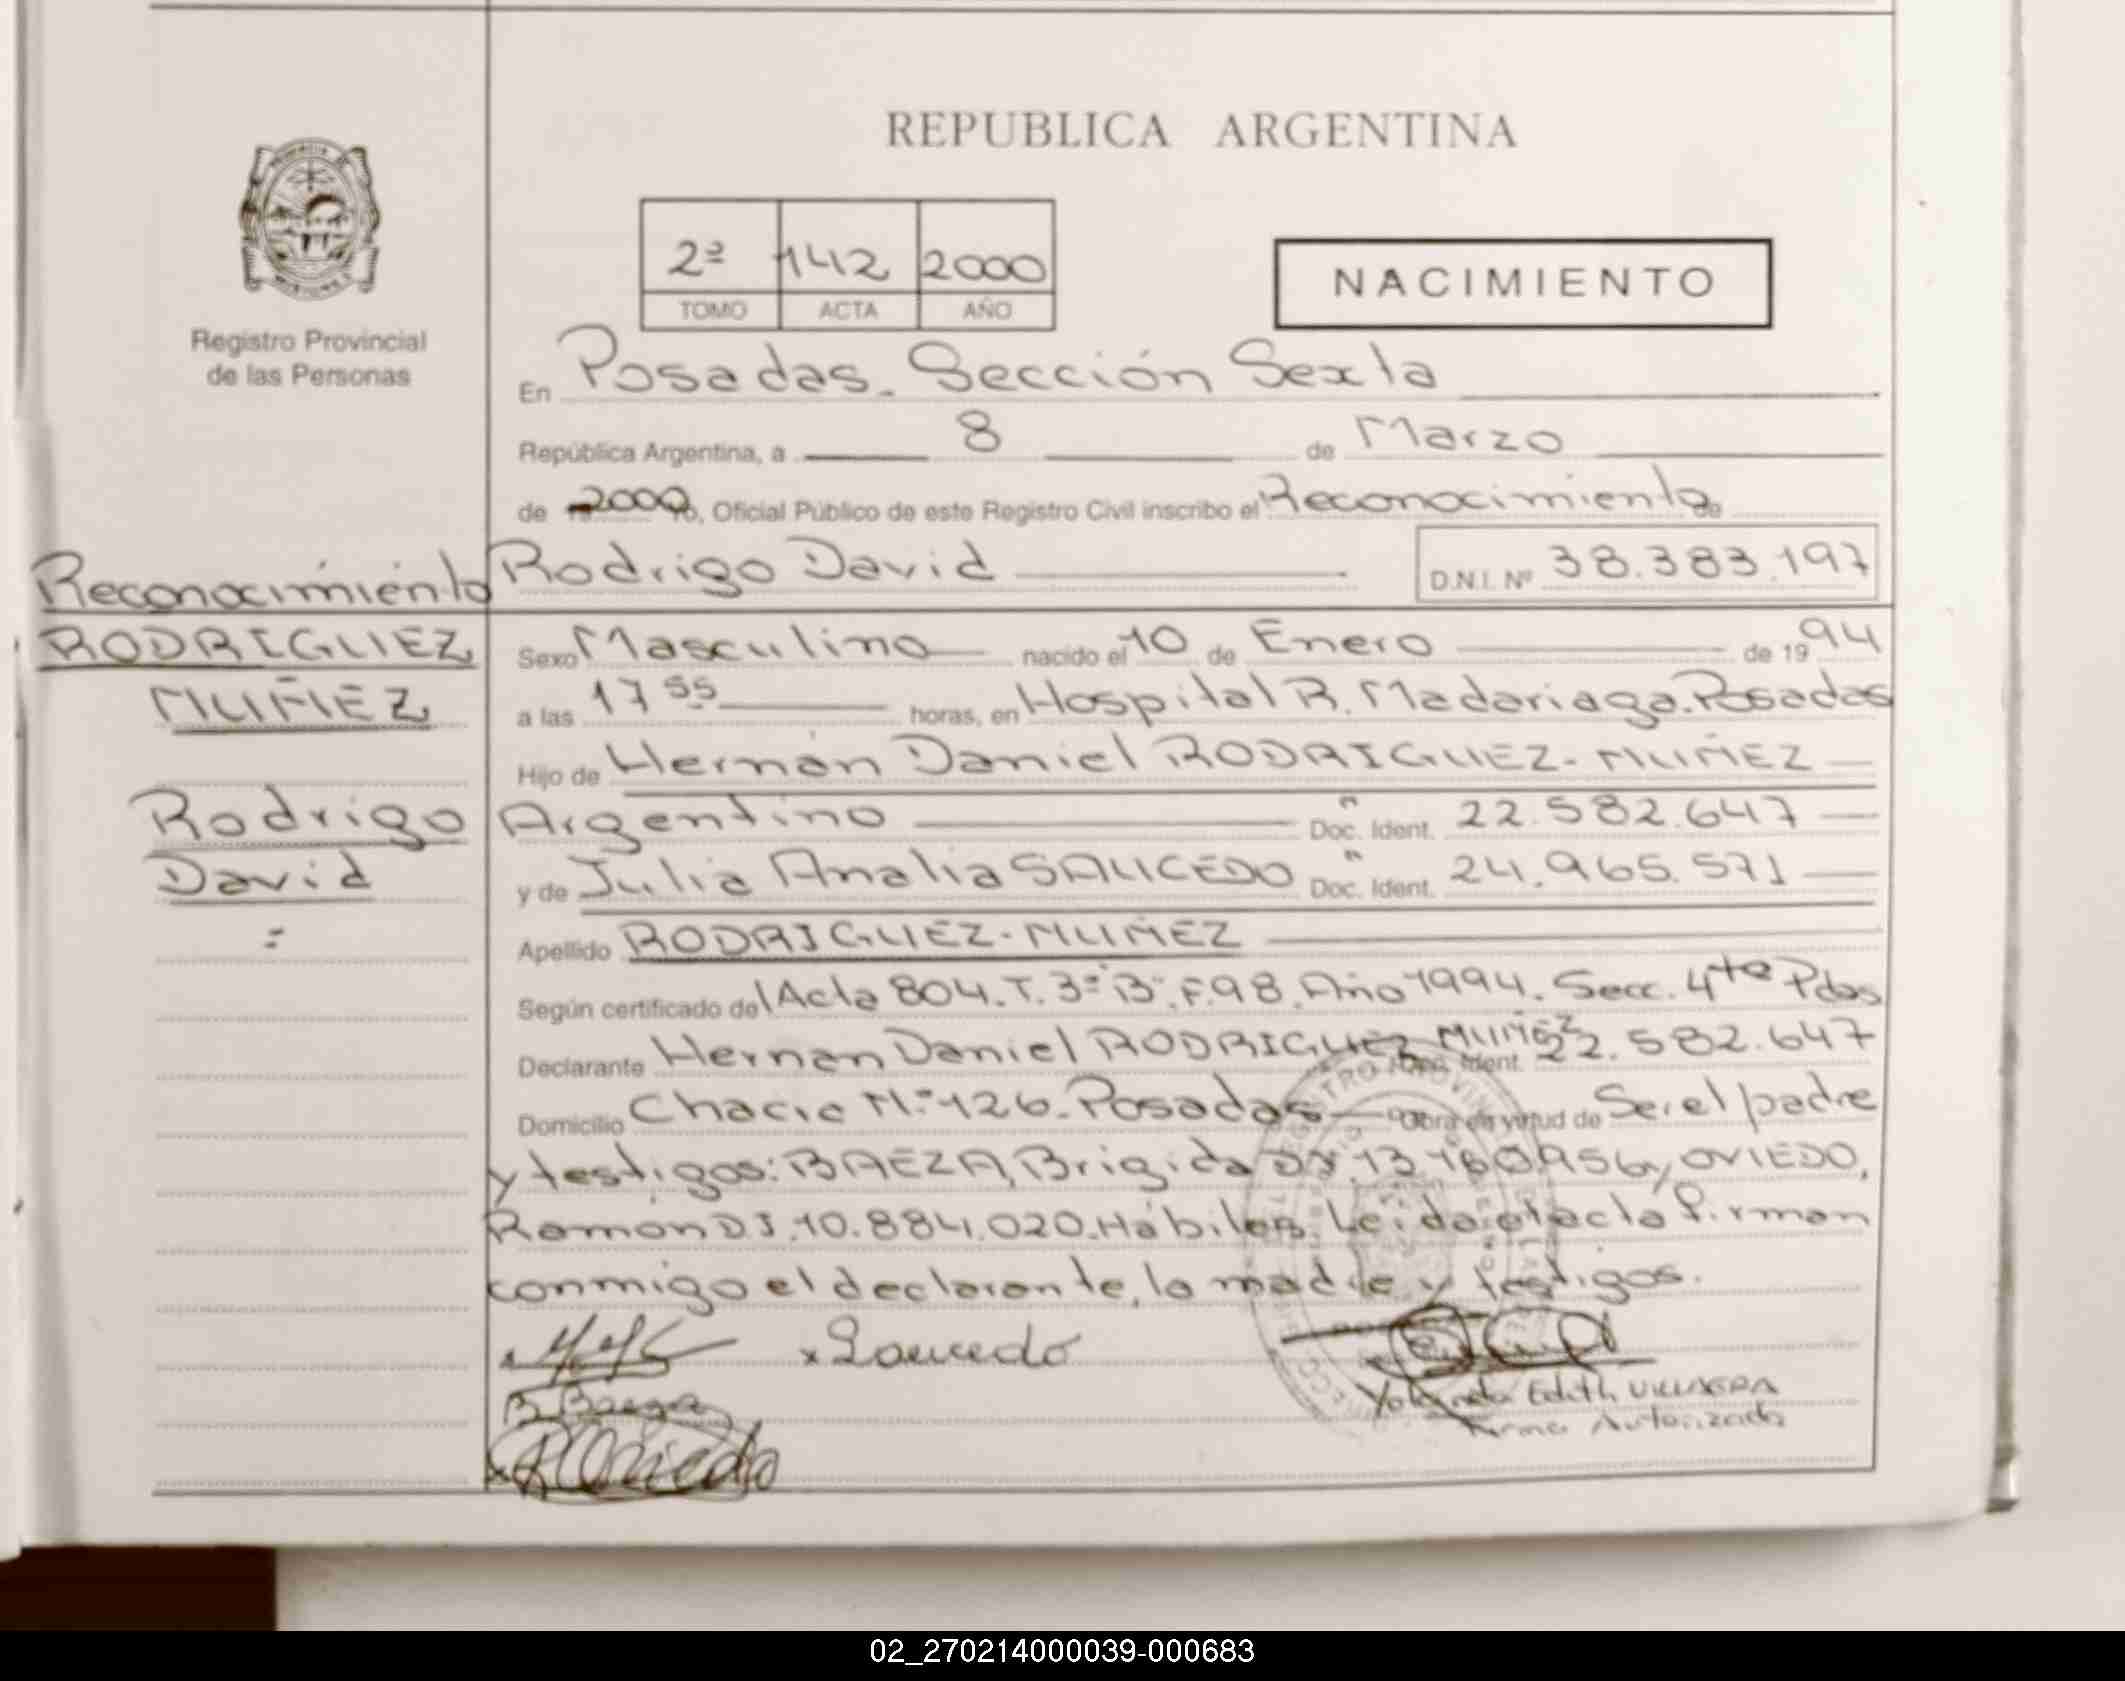 REPUBLICA ARGENTINA
2ª 142 2000
TOMO ACTA AÑO
NACIMIENTO
Registro Provincial
de las Personas
En Posadas. Sección Sexta
República Argentina, a 8 de Marzo
de 2000 Yo, Oficial Público de este Registro Civil inscribo el Reconocimiento de
Rodrigo David D.N.I. Nº 38.383.197
Reconocimiento
RODRIGUEZ
MUÑEZ
Rodrigo
David
Sexo Masculino nacido el 10 de Enero de 1994
a las 17 55 horas, en Hospital R. Madariaga. Posadas
Hijo de Hernán Daniel RODRIGUEZ-MUÑEZ
Argentino Doc. Ident. 22.582.647
y de Julia Analia SAUCEDO Doc. Ident. 24.965.571
Apellido RODRIGUEZ-MUÑEZ
Según certificado del Acta 804. T. 3º "B". F. 98. Año 1994. Secc. 4ta Pdas
Declarante Hernan Daniel RODRIGUEZ MUÑEZ Doc. Ident. 22.582.647
Domicilio Chacra N.º 126. Posadas Obra en virtud de Ser el padre
y testigos: BAEZA, Brigida DI. 13.180.956 y OVIEDO,
Ramón D.I. 10.884.020. Hábiles. Leida el acta firman
conmigo el declarante, la madre y testigos.
x Saucedo
B. Baeza
x R Oviedo
Yolanda Edith VILLAGRA
Firma Autorizada
02_270214000039-000683